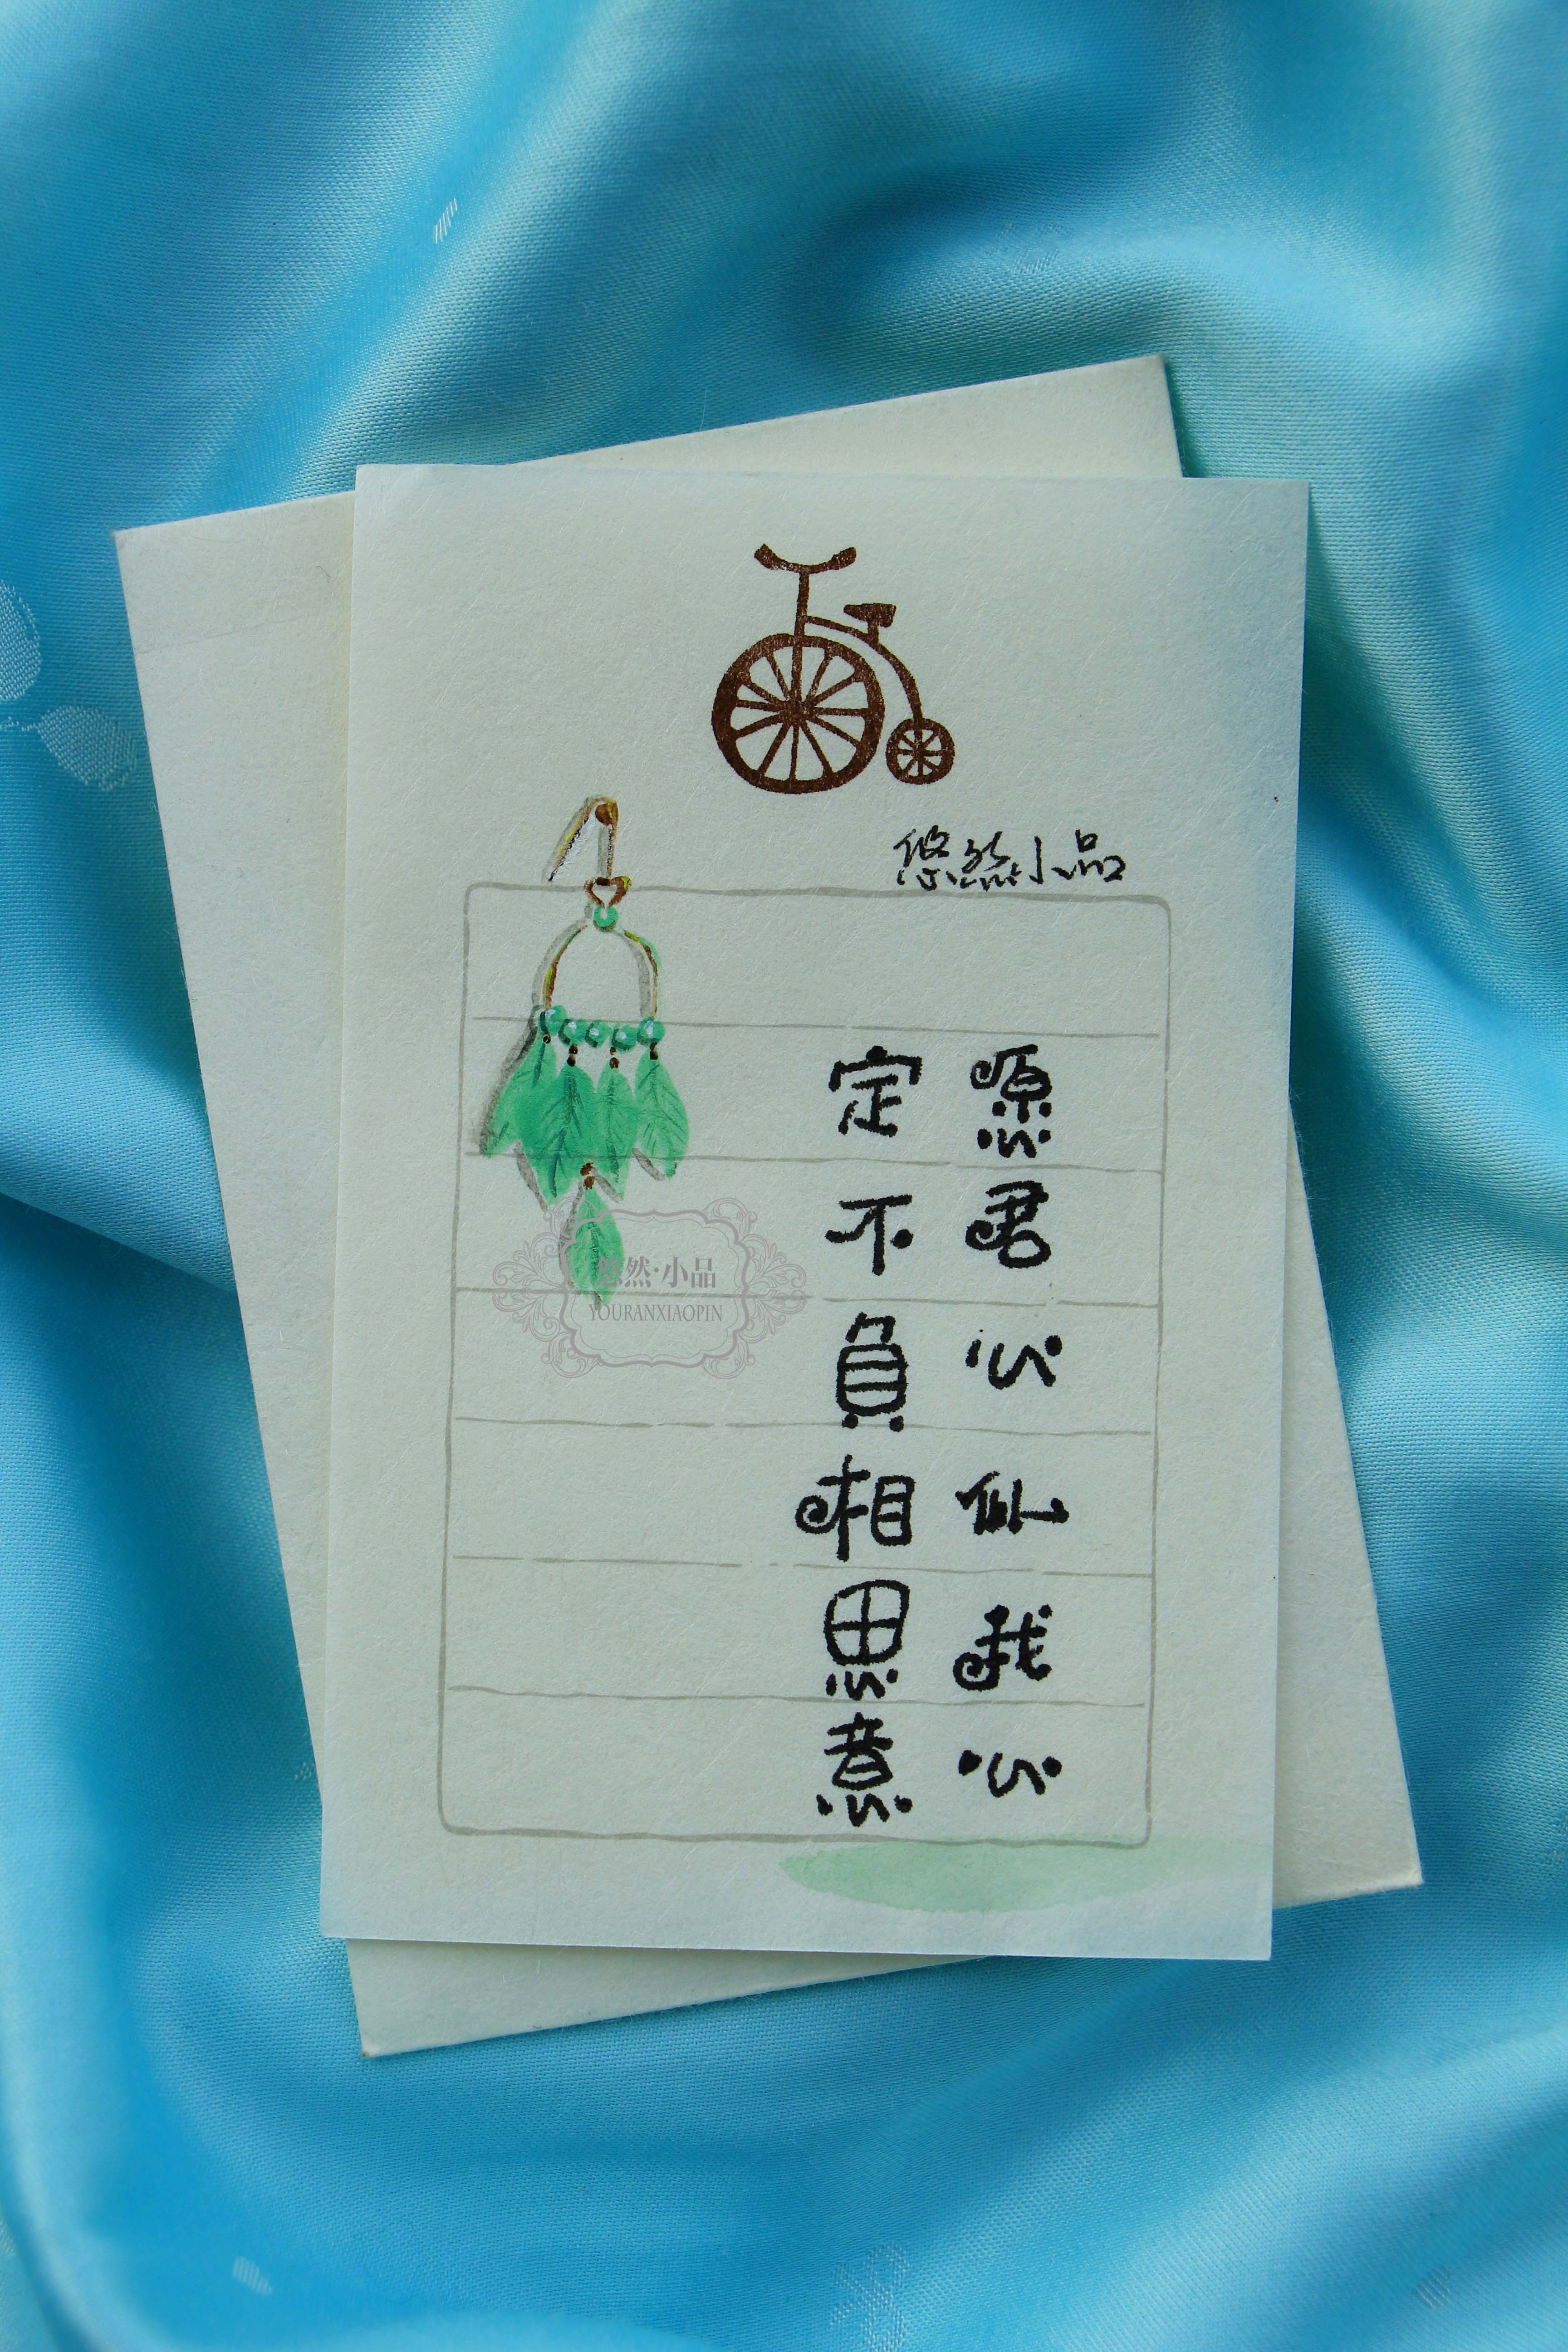 悠然小品
愿君心似我心
定不負相思意
悠然·小品
YOURANXIAOPIN